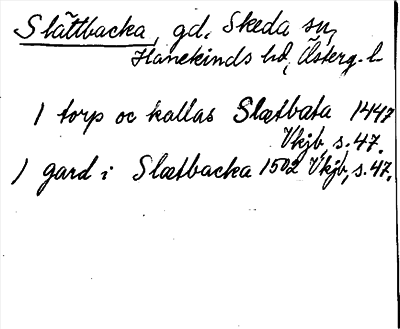 Slättbacka, gd, Skeda sn,
Hanekinds hd, Österg. l.
1 torp oc kallas Slætbata 1447
Vkjb, s. 47.
1 gard i Slætbacka 1502 Vkjb, s. 47.